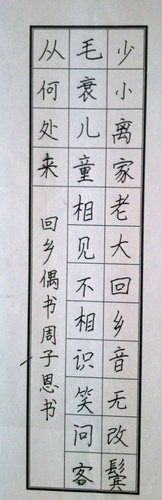 少小离家老大回乡音无改鬓
毛衰儿童相见不相识笑问客
从何处来 回乡偶书周子恩书